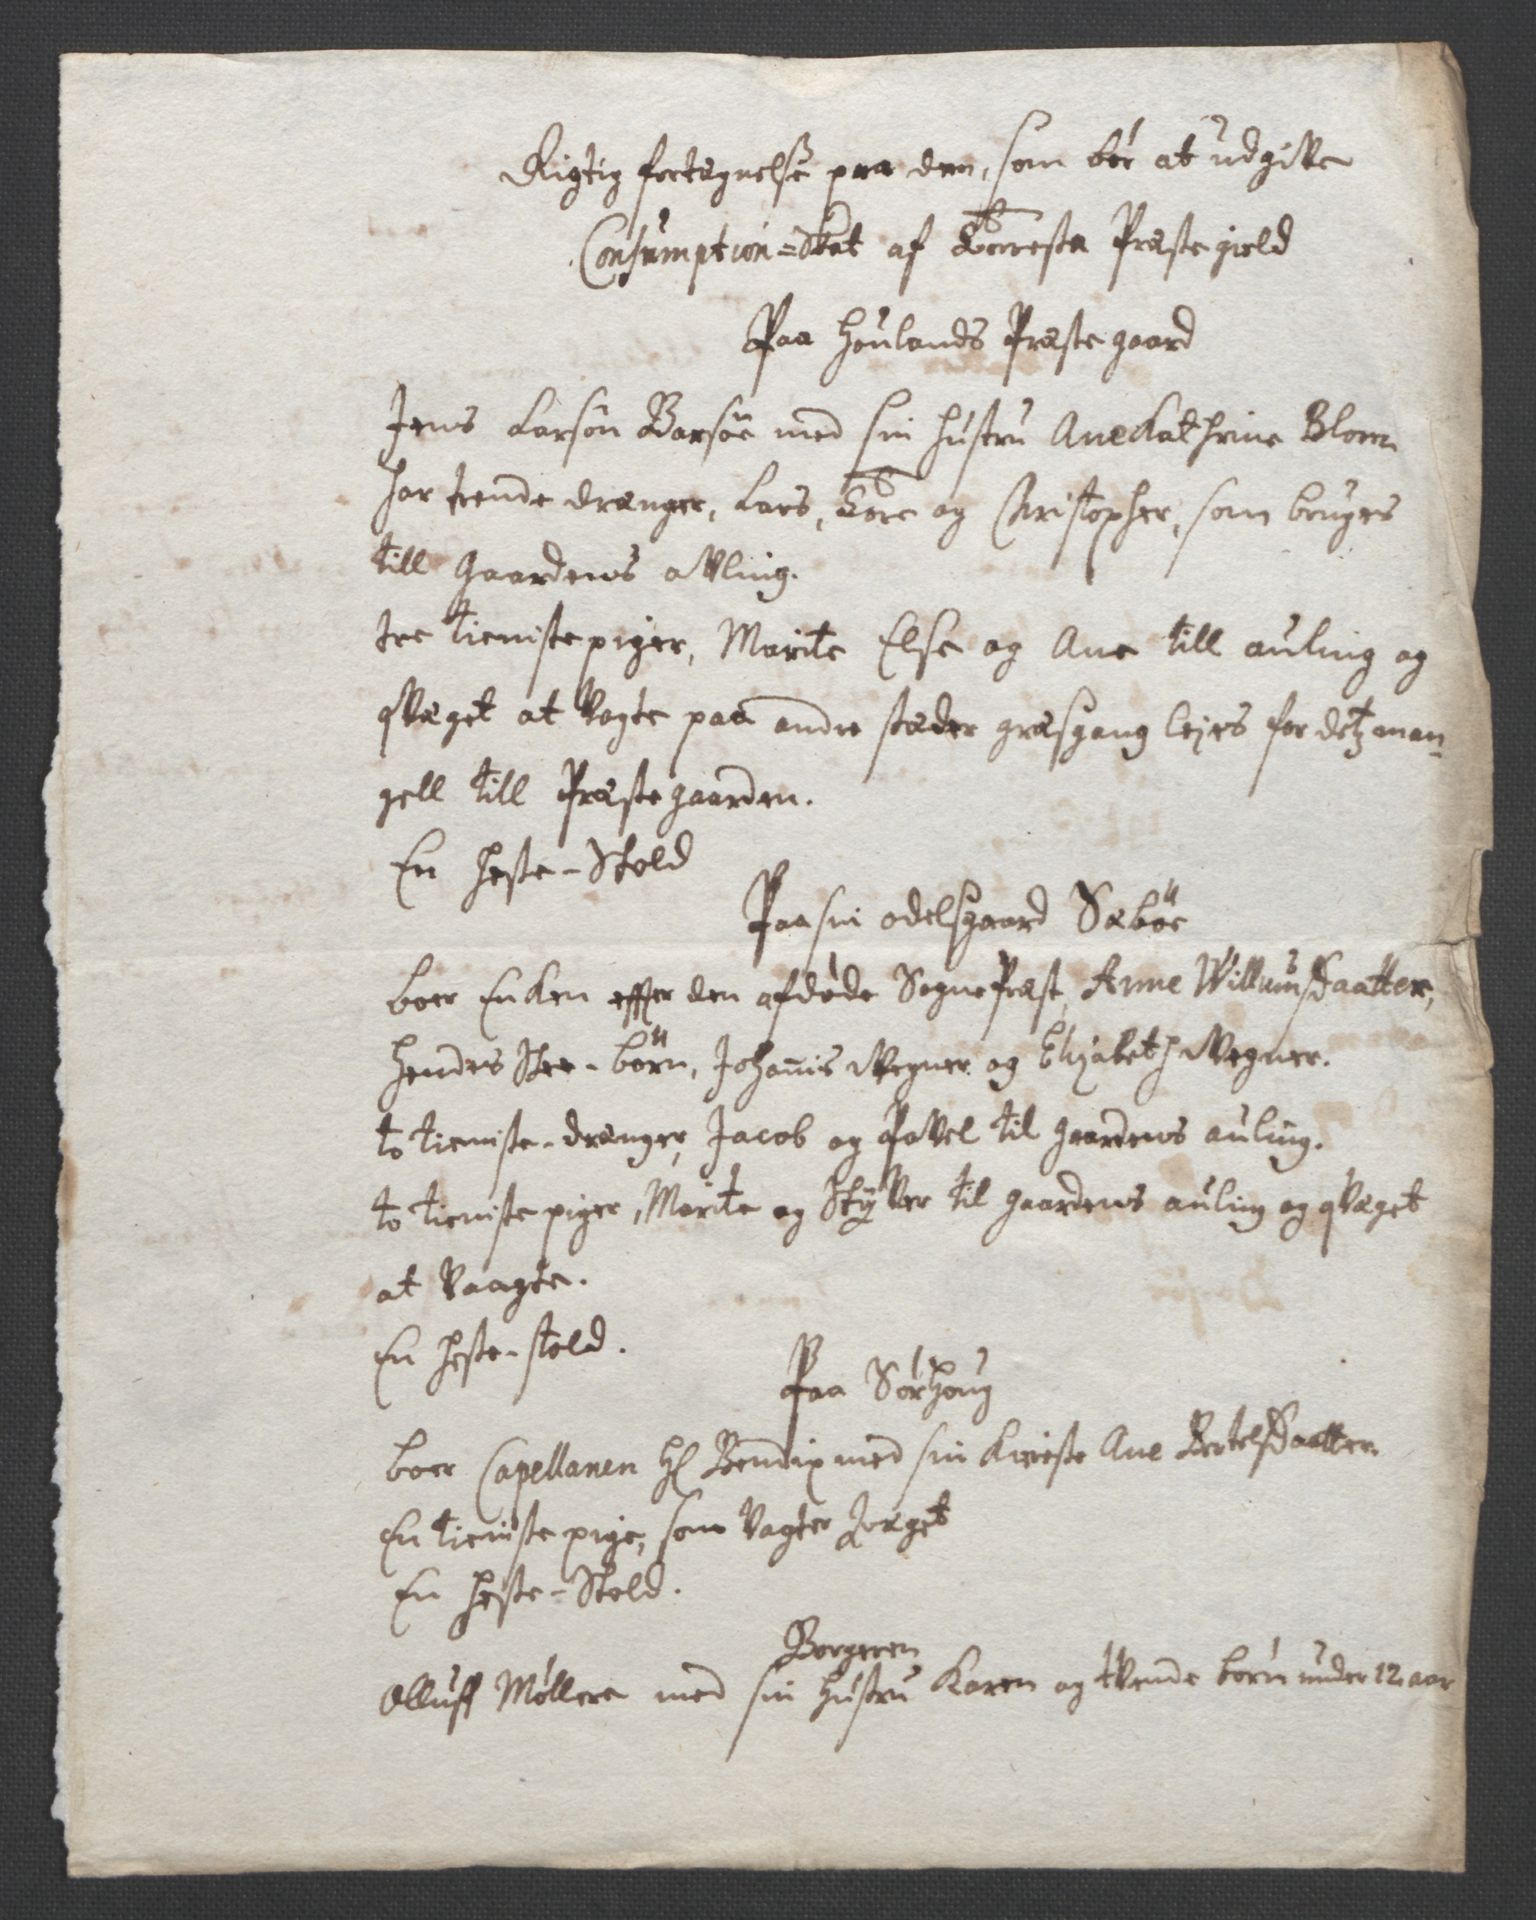 Rigtig fortægnelse paa dem, som bör at udgiVe
Consumption=Skat af Torresta Præstegield
Paa Houlands Præstegaard
Jens Larsön Barsöe med sin hustru AneKathrine Blom
har trende drænger, Lars, Tore og Christopher, som bruges
till Gaardens aVling.
tre tieniste piger, Marite Else og Ane till auling og
qVæget at Vogte paa andre stæder græsgang lejes for detz man-
gell till Præstegaarden.
En heste-Stold
Paa sin odelsgaard Sæböe
boer Enken effter den afdöde SognePræst, Anne Willumsdaatter,
hendes Stee-börn, Johannis Wegner og Elizabeth Wegner.
to tieniste-drænger, Jacob og PoVel til gaardens auling.
to tieniste piger, Marite og StÿVer til gaardens auling og qVæget
at Vaagte.
En heste-stold.
Paa Sörhoug
boer Capellanen Hl Bendix med sin Kiereste Ane Bertelsdaatter
En tieniste pige, som Vagter
En heste-Stold.
Borgeren
Olluff Møllere med sin hustru Karen og tVende börn under 12 aar